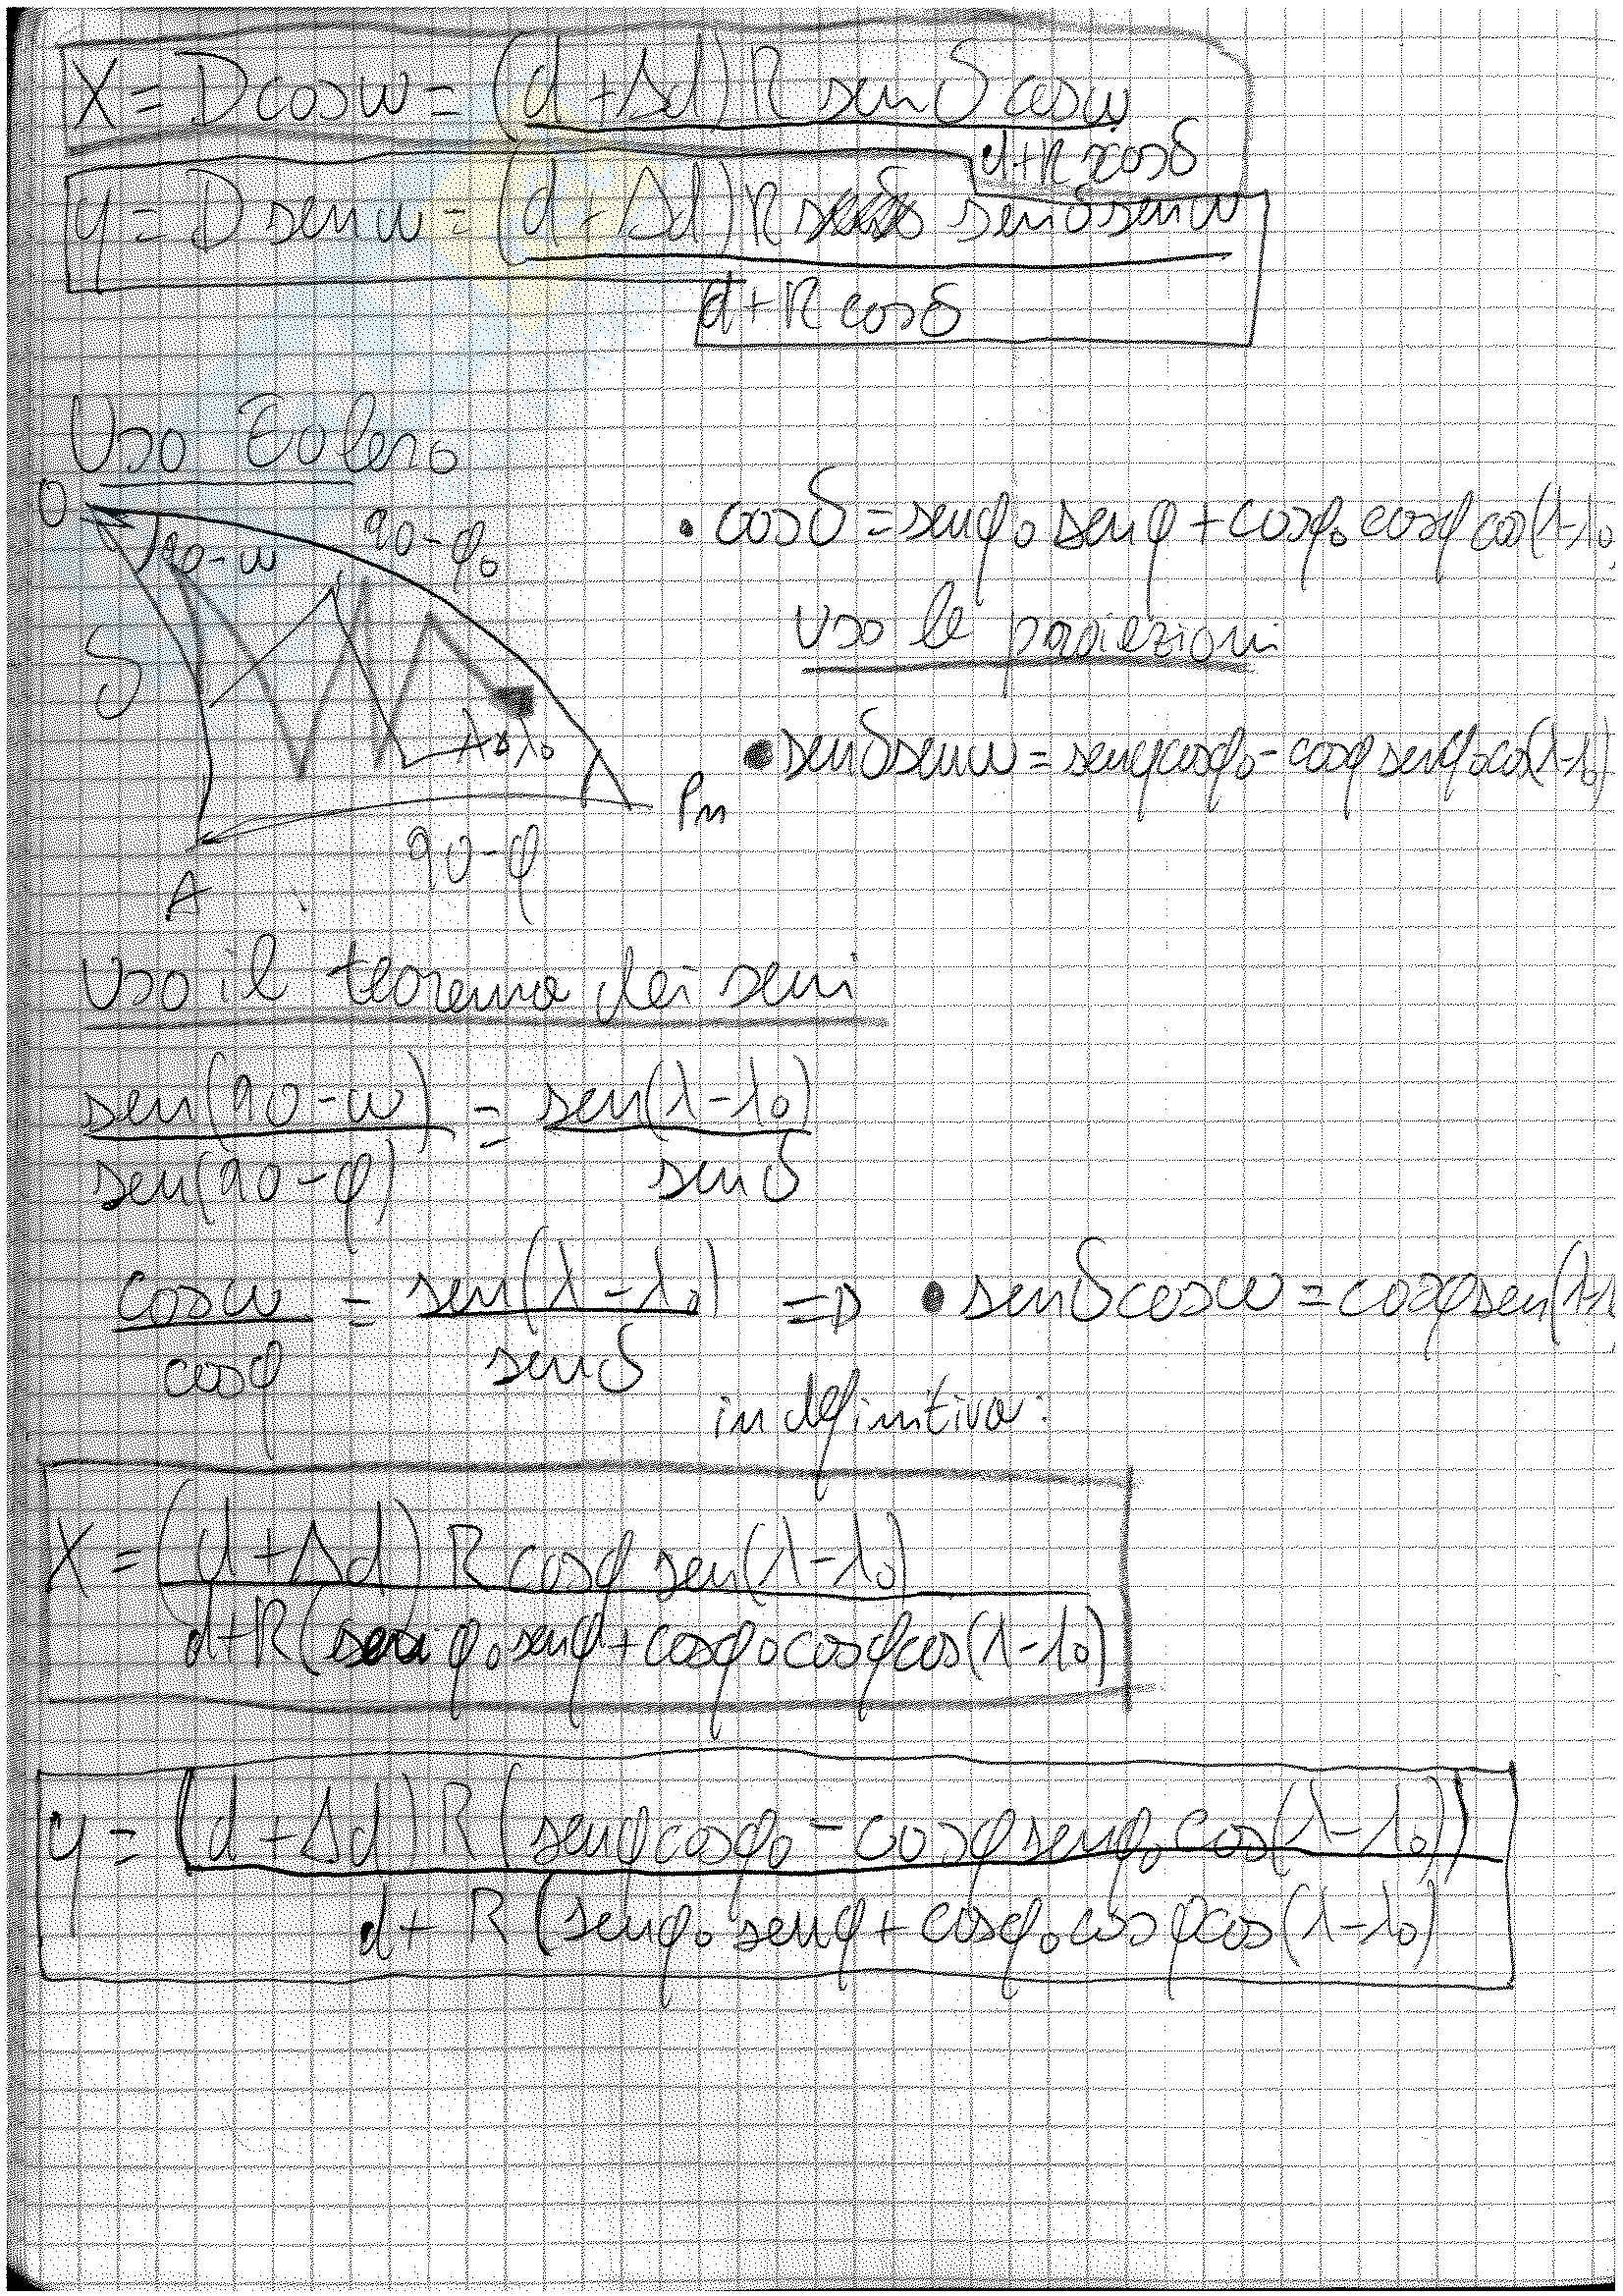 X = D cos ω = (d + Δd) R sen δ cos ω
d + R cos δ
y = D sen ω = (d + Δd) R sen δ sen ω
d + R cos δ
Uso Eulero
O
90-ω
90-φ₀
δ
λ-λ₀
Pn
90-φ
A
• cos δ = sen φ₀ sen φ + cos φ₀ cos φ cos (λ-λ₀
Uso le proiezioni
• sen δ sen ω = sen φ cos φ₀ - cos φ sen φ₀ cos (λ-λ₀)
Uso il teorema dei seni
sen (90-ω) = sen (λ-λ₀)
sen (90-φ) sen δ
cos ω = sen (λ-λ₀) => • sen δ cos ω = cos φ sen (λ-λ
cos φ sen δ
in definitiva:
X = (d + Δd) R cos φ sen (λ-λ₀)
d + R (sen φ₀ sen φ + cos φ₀ cos φ cos (λ-λ₀)
y = (d + Δd) R (sen φ cos φ₀ - cos φ sen φ₀ cos (λ-λ₀))
d + R (sen φ₀ sen φ + cos φ₀ cos φ cos (λ-λ₀)